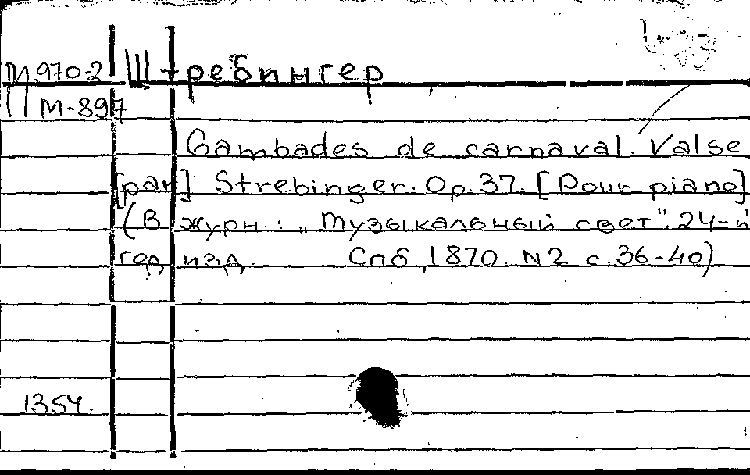 М970-2 Штребингер
М-897
Gambades de carnaval. Valse
[par] Strebinger. Op. 37. [Pour piano]
(В журн: „Музыкальный свет". 24-й
год изд. Спб, 1870. N2 с. 36-40)
1354.